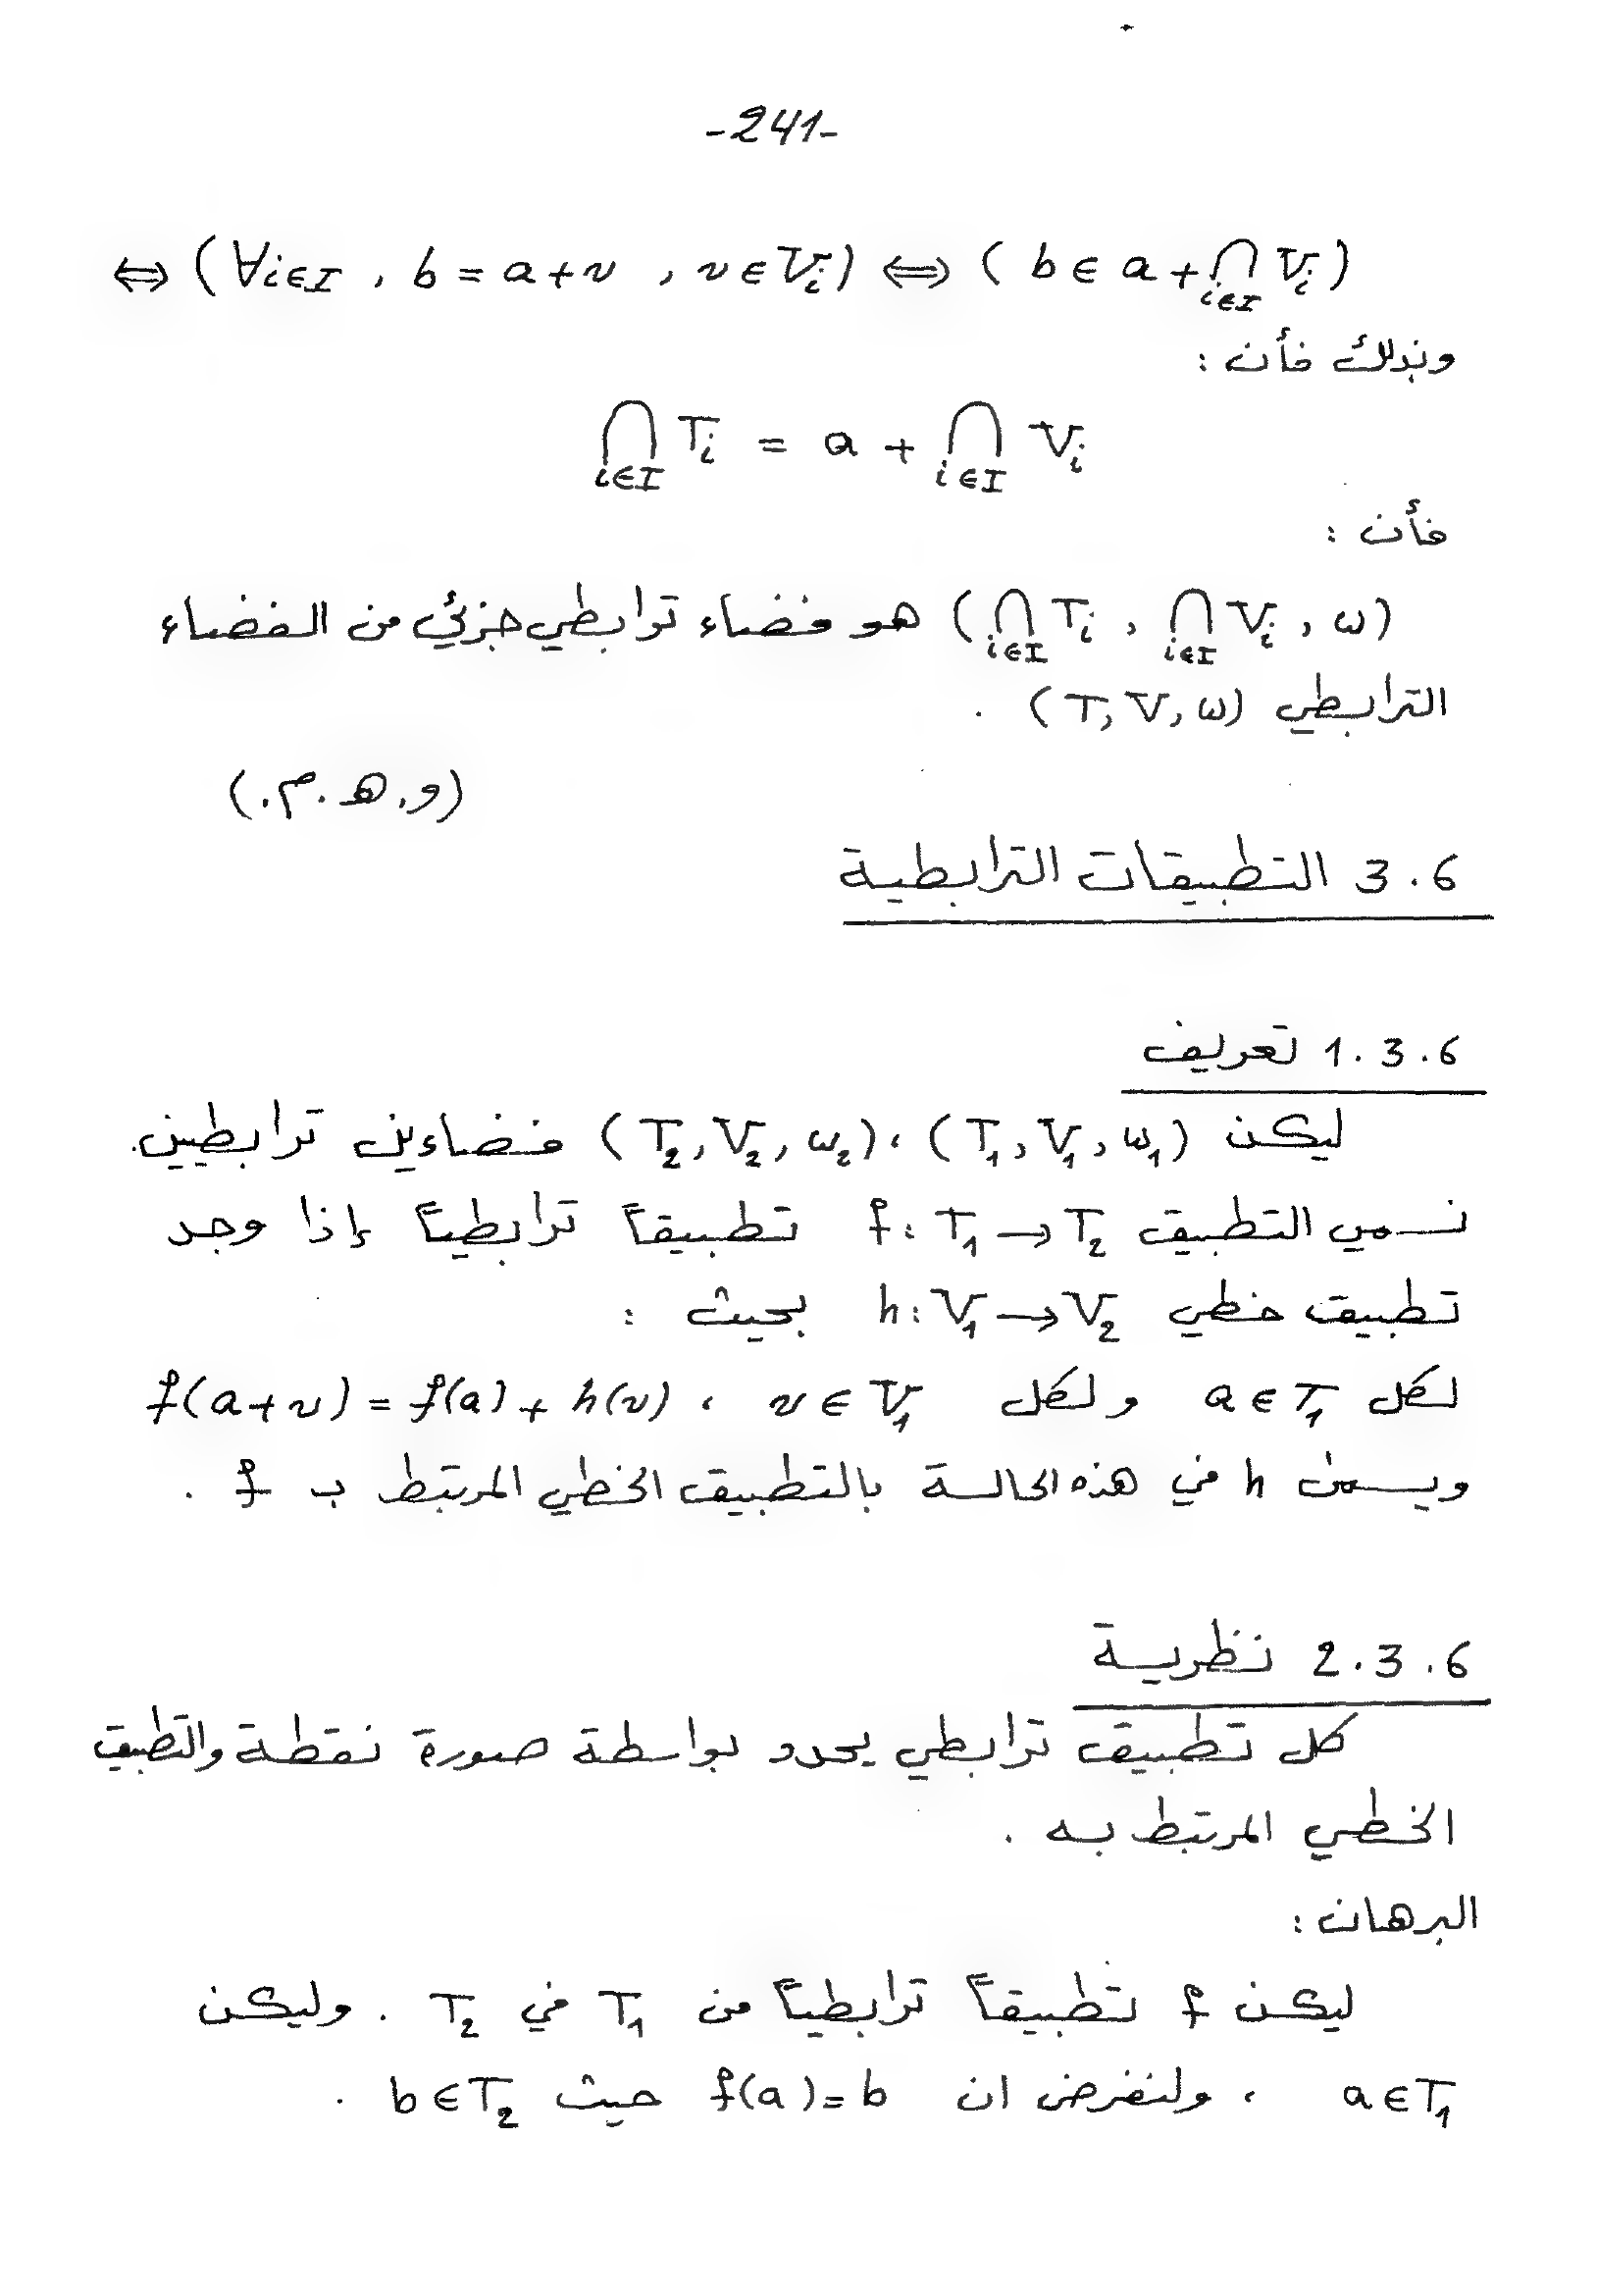 -241-
⇔ (∀i∈I , b = a+v , v∈Vᵢ) ⇔ ( b ∈ a + ⋂_{i∈I} Vᵢ )
وبذلك فأن :
⋂_{i∈I} Tᵢ = a + ⋂_{i∈I} Vᵢ
فأن :
(⋂_{i∈I} Tᵢ , ⋂_{i∈I} Vᵢ , ω) هو فضاء ترابطي جزئي من الفضاء
الترابطي (T, V, ω) .
(و.هـ.م.)
3.6 التطبيقات الترابطية
1.3.6 تعريف
ليكن (T₁, V₁, ω₁) ، (T₂, V₂, ω₂) فضاءين ترابطيين.
نسمي التطبيق f: T₁ → T₂ تطبيقاً ترابطياً إذا وجد
تطبيق خطي h: V₁ → V₂ بحيث :
لكل a ∈ T₁ ولكل v ∈ V₁ ، f(a+v) = f(a) + h(v)
ويسمى h في هذه الحالة بالتطبيق الخطي المرتبط ب f .
2.3.6 نظرية
كل تطبيق ترابطي يحدد بواسطة صورة نقطة والتطبيق
الخطي المرتبط به .
البرهان :
ليكن f تطبيقاً ترابطياً من T₁ في T₂ . وليكن
a ∈ T₁ ، ولنفرض ان f(a) = b حيث b ∈ T₂ .